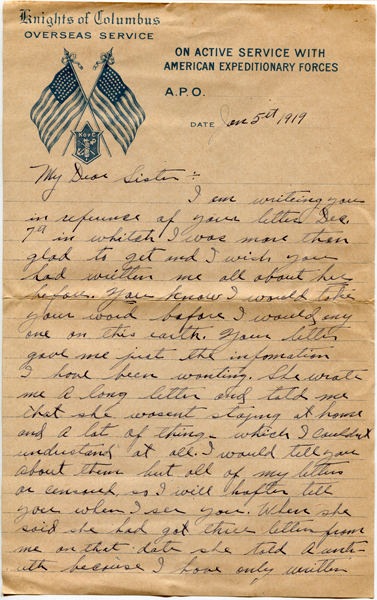 Knights of Columbus
OVERSEAS SERVICE
ON ACTIVE SERVICE WITH
AMERICAN EXPEDITIONARY FORCES
A.P.O.
K of C
DATE Jan 5th 1919
My Dear Sister:
I am writeing you
in referense of your letter Dec
7th in whitch I was more than
glad to get and I wish you
had written me all about her
before. You know I would take
your word before I would any
one on this earth. Your letter
gave me just the infomation
I have been wanting. She wrote
me a long letter and told me
that she wosent staying at home
and a lot of things which I couldent
understand at all. I would tell you
about them but all of my letters
or censored, so I will hafter tell
you when I see you. When she
said she had got three letter from
me on that date she told a untr-
uth because I have only written